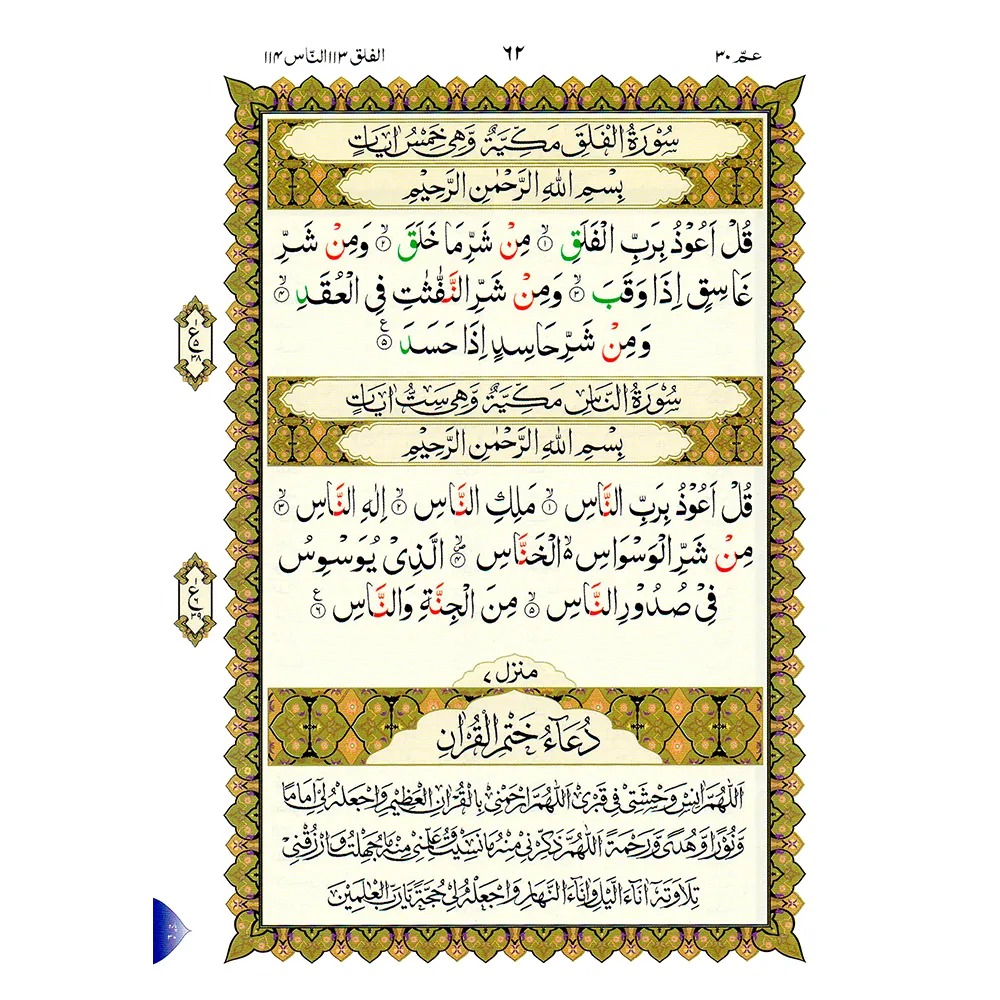 عمّ ٣٠
٦٢
الفلق ١١٣ النّاس ١١٤
سُوْرَةُ الْفَلَقِ مَكِّيَّةٌ وَّهِيَ خَمْسُ اٰيَاتٍ
بِسْمِ اللهِ الرَّحْمٰنِ الرَّحِيْمِ
قُلْ اَعُوْذُ بِرَبِّ الْفَلَقِ ۙ﴿١﴾ مِنْ شَرِّ مَا خَلَقَ ۙ﴿٢﴾ وَمِنْ شَرِّ
غَاسِقٍ اِذَا وَقَبَ ۙ﴿٣﴾ وَمِنْ شَرِّ النَّفّٰثٰتِ فِي الْعُقَدِ ۙ﴿٤﴾
وَمِنْ شَرِّ حَاسِدٍ اِذَا حَسَدَ ﴿٥﴾ ع
١ ع ٥ ٣٨
سُوْرَةُ النَّاسِ مَكِّيَّةٌ وَّهِيَ سِتُّ اٰيَاتٍ
بِسْمِ اللهِ الرَّحْمٰنِ الرَّحِيْمِ
قُلْ اَعُوْذُ بِرَبِّ النَّاسِ ۙ﴿١﴾ مَلِكِ النَّاسِ ۙ﴿٢﴾ اِلٰهِ النَّاسِ ۙ﴿٣﴾
مِنْ شَرِّ الْوَسْوَاسِ ۙ۬ الْخَنَّاسِ ۪ۙ﴿٤﴾ الَّذِيْ يُوَسْوِسُ
فِيْ صُدُوْرِ النَّاسِ ۙ﴿٥﴾ مِنَ الْجِنَّةِ وَالنَّاسِ ﴿٦﴾ ع
١ ع ٦ ٣٩
منزل ٧
دُعَآءُ خَتْمِ الْقُرْاٰنِ
اَللّٰهُمَّ اٰنِسْ وَحْشَتِيْ فِيْ قَبْرِيْ اَللّٰهُمَّ ارْحَمْنِيْ بِالْقُرْاٰنِ الْعَظِيْمِ وَاجْعَلْهُ لِيْٓ اِمَامًا
وَّنُوْرًا وَّهُدًى وَّرَحْمَةً اَللّٰهُمَّ ذَكِّرْنِيْ مِنْهُ مَا نَسِيْتُ وَعَلِّمْنِيْ مِنْهُ مَا جَهِلْتُ وَارْزُقْنِيْ
تِلَاوَتَهٗ اٰنَآءَ الَّيْلِ وَاٰنَآءَ النَّهَارِ وَاجْعَلْهُ لِيْ حُجَّةً يَّا رَبَّ الْعٰلَمِيْنَ
پاره
٣٠